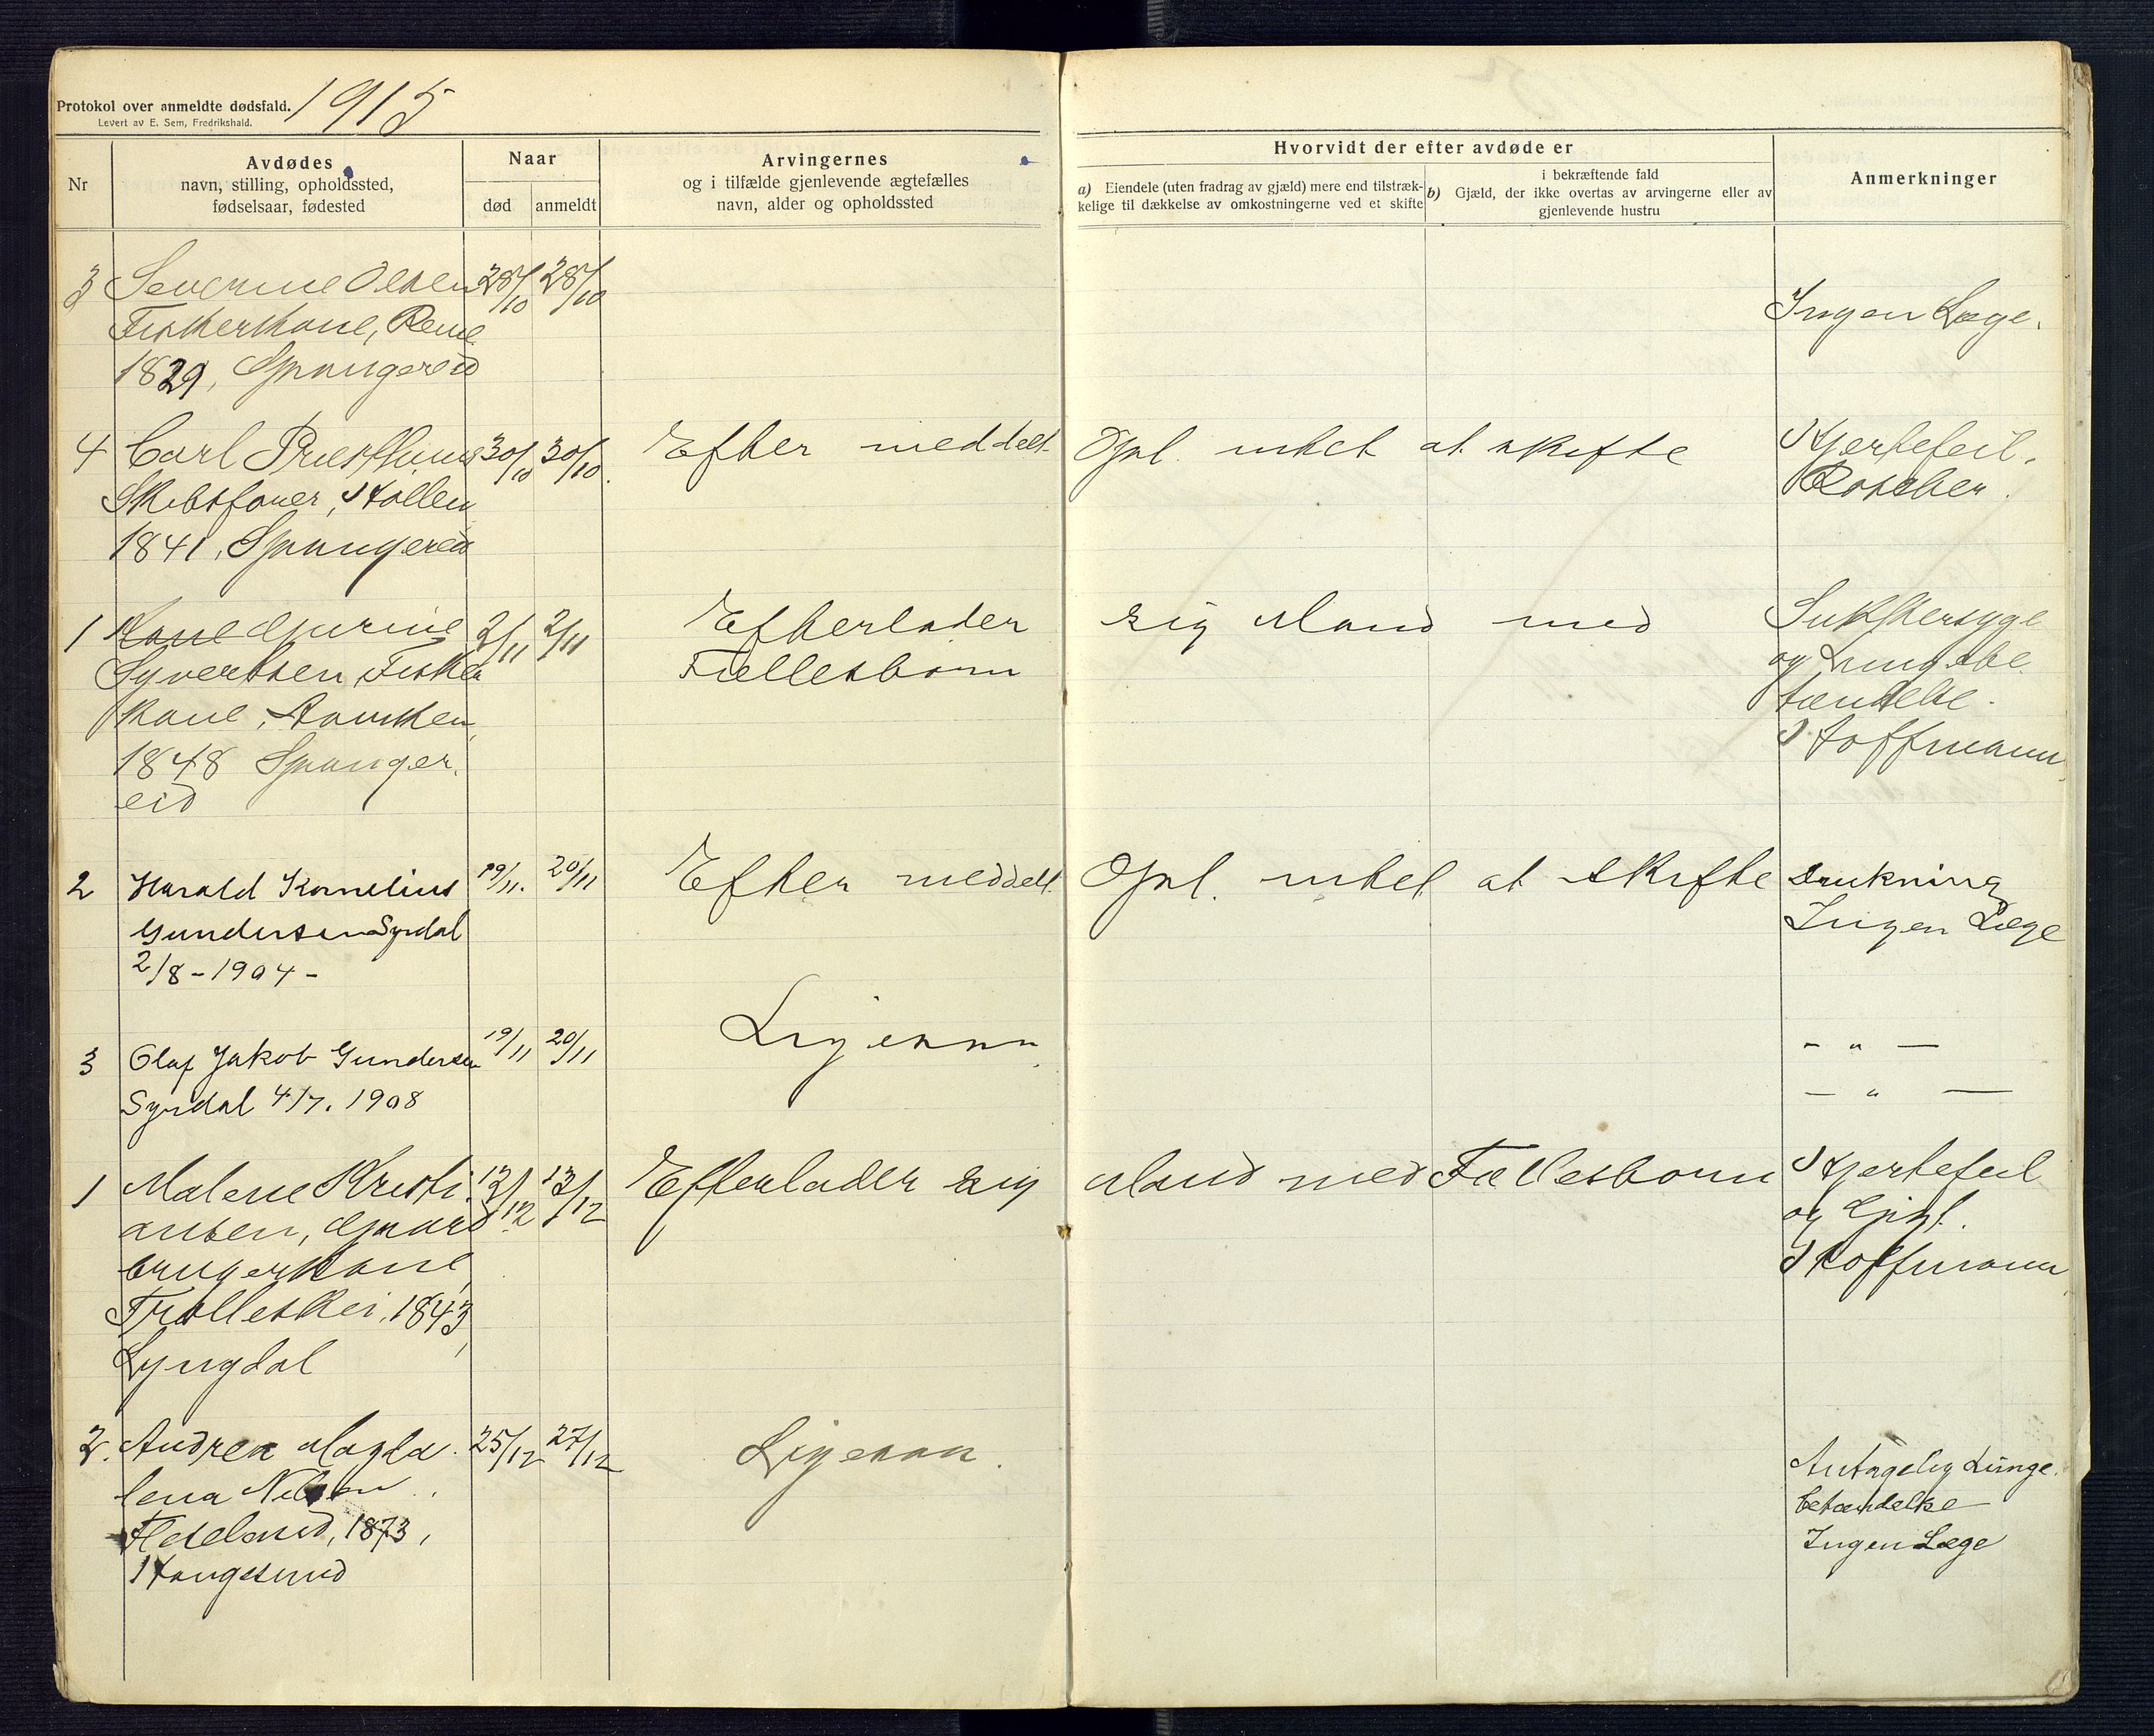 Protokol over anmeldte dødsfald. 1915
Levert av E. Sem, Fredrikshald.
Nr
Avdødes
navn, stilling, opholdssted,
fødselsaar, fødested
Naar
død anmeldt
Arvingernes
og i tilfælde gjenlevende ægtefælles
navn, alder og opholdssted
Hvorvidt der efter avdøde er
a) Eiendele (uten fradrag av gjæld) mere end tilstræk-
kelige til dækkelse av omkostningerne ved et skifte
i bekræftende fald
b) Gjæld, der ikke overtas av arvingerne eller av
gjenlevende hustru
Anmerkninger
3 Severine Olsen 28/10 28/10
Fiskerkone, Rene
1829, Spangereid
Ingen Læge.
4 Carl 30/10 30/10. Efter meddelt Opl. intet at skifte Hjertefeil.
Skibsfører,
1841, Spangereid
1 Kone Gurine 2/11 2/11 Efterlader sig Mand med Sukkersyge
Syvertsen, Fisker Fællesbørn og Lungebe
kone, tændelse.
1848 Spanger. Hoffmann
eid
2 Harald Kornelius 19/11. 20/11 Efter meddelt Opl. intet at skifte Drukning
Gundersen Syrdal Ingen Læge
2/8-1904-
3 Olaf Jakob Gundersen 19/11 20/11 Ligesaa - " -
Syrdal 4/7. 1908 - " -
1 Malene Kristi 13/12 13/12 Efterlader sig Mand med Fællesbørn Hjertefeil
ansen, Gaard og
brugerkone, Hoffmann
Trolleskei, 1843,
Lyngdal
2. Andrea Magda 25/12 27/12 Ligesaa.
lena Nilsen
1873,
Haugesund
Antagelig Lunge
betændelse
Ingen Læge